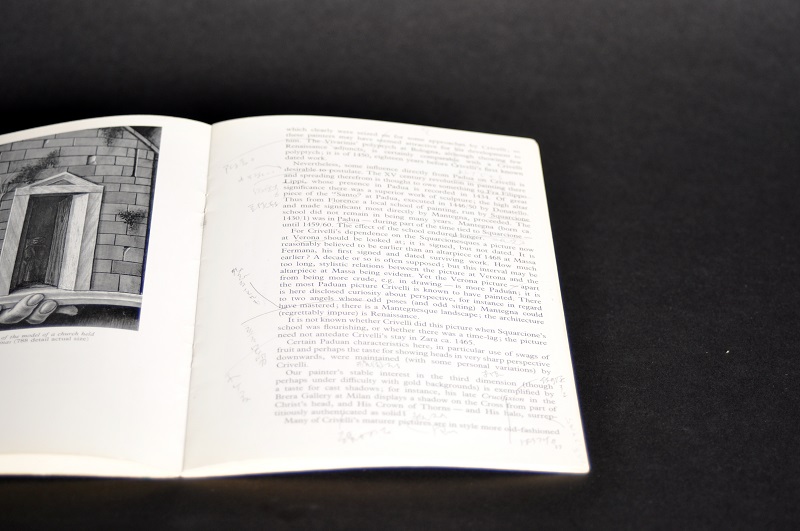 of the model of a church held
(788 detail actual size)
which clearly
these painters may have seemed attractive for his development
tion. The Vivarini polyptych at Bologna, although showing few
Renaissance
polyptych; it is of 1450, eighteen years before Crivelli's first known
dated work.
Nevertheless, some influence directly from Padua on Crivelli is
desirable to postulate. The XV century revolution in painting there
and spreading therefrom is thought to owe something to Fra Filippo
Lippi, whose presence in Padua is recorded in 1434. Of great
significance there was a superior work of sculpture; the high altar
piece of the "Santo" at Padua, executed in 1446/50 by Donatello.
Thus from Florence a local school of painting, run by Squarcione
and made significant most directly by Mantegna, proceeded. The
school did not remain in being many years. Mantegna (born ca.
1430/1) was in Padua — during part of the time tied to Squarcione —
until 1459/60. The effect of the school endured longer.
For Crivelli's dependence on the Squarcionesques a picture now
at Verona should be looked at; it is signed, but not dated. It is
reasonably believed to be earlier than an altarpiece of 1468 at Massa
Fermana, his first signed and dated surviving work. How much
earlier? A decade or so is often supposed; but this interval may be
too long, stylistic relations between the picture at Verona and the
altarpiece at Massa being evident. Yet the Verona picture — apart
from being more crude, e.g. in drawing — is more Paduan; it is
the most Paduan picture Crivelli is known to have painted. There
is here disclosed curiosity about perspective, for instance in regard
to two angels whose odd poses (and odd siting) Mantegna could
have mastered; there is a Mantegnesque landscape; the architecture
(regrettably impure) is Renaissance.
It is not known whether Crivelli did this picture when Squarcione's
school was flourishing, or whether there was a time-lag; the picture
need not antedate Crivelli's stay in Zara ca. 1465.
Certain Paduan characteristics here, in particular use of swags of
fruit and perhaps the taste for showing heads in very sharp perspective
downwards, were maintained (with some personal variations) by
Crivelli.
Our painter's stable interest in the third dimension (though
perhaps under difficulty with gold backgrounds) is exemplified by
a taste for cast shadows; for instance, his late Crucifixion in the
Brera Gallery at Milan displays a shadow on the Cross from part of
Christ's head, and His Crown of Thorns — and His halo, surrep-
titiously authenticated as solid!
Many of Crivelli's maturer pictures are in style more old-fashioned